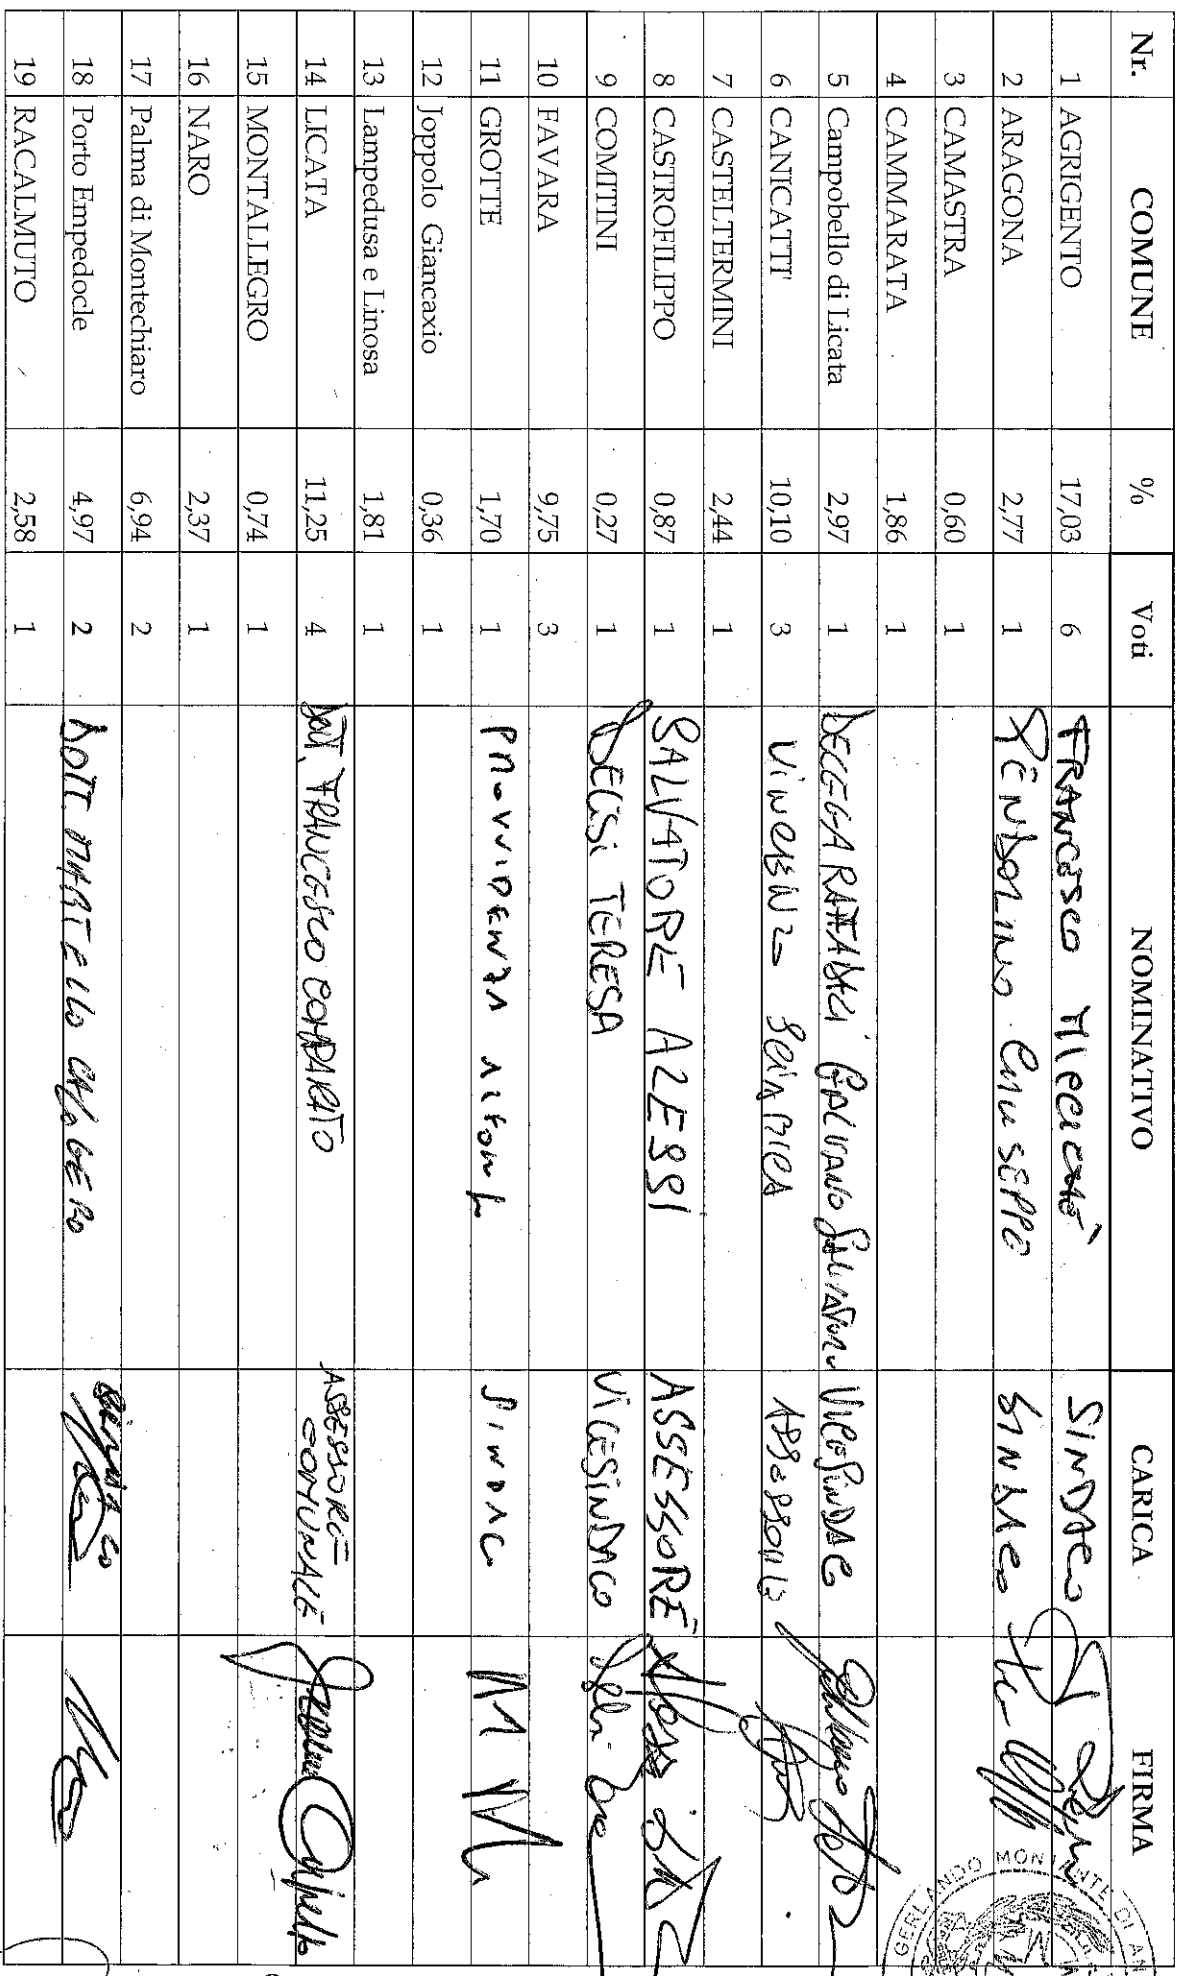 Nr. COMUNE % Voti NOMINATIVO CARICA FIRMA
1 AGRIGENTO 17,03 6 FRANCESCO MICCICHÈ SINDACO
2 ARAGONA 2,77 1 PENDOLINO GIUSEPPE SINDACO
3 CAMASTRA 0,60 1
4 CAMMARATA 1,86 1
5 Campobello di Licata 2,97 1 GALVANO SALVATORE VICESINDACO
6 CANICATTI' 10,10 3 VINCENZO ASSESSORE
7 CASTELTERMINI 2,44 1
8 CASTROFILIPPO 0,87 1 SALVATORE ALESSI ASSESSORE
9 COMITINI 0,27 1 DELISI TERESA VICESINDACO
10 FAVARA 9,75 3
11 GROTTE 1,70 1 PROVVIDENZA ALFONSO SINDACO
12 Joppolo Giancaxio 0,36 1
13 Lampedusa e Linosa 1,81 1
14 LICATA 11,25 4 DOTT. FRANCESCO COMPARATO ASSESSORE COMUNALE
15 MONTALLEGRO 0,74 1
16 NARO 2,37 1
17 Palma di Montechiaro 6,94 2
18 Porto Empedocle 4,97 2 DOTT. MARTELLO CALOGERO SINDACO
19 RACALMUTO 2,58 1
GERLANDO MONTANTE DI AN